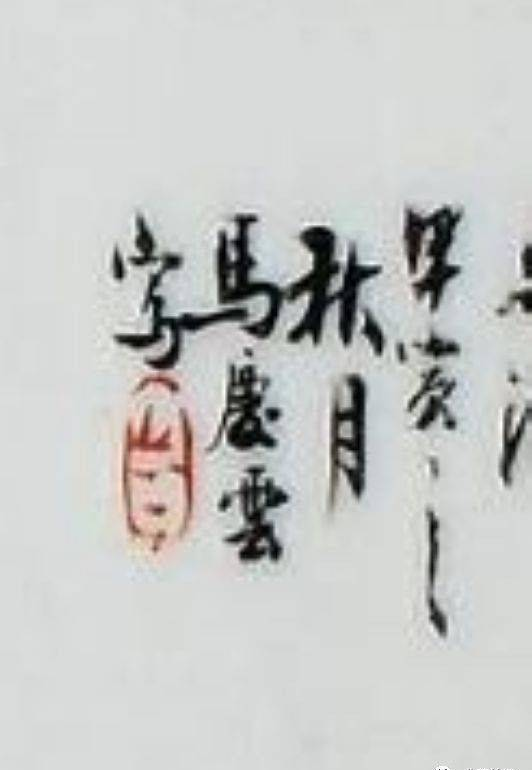 甲寅之
秋月
馬慶雲
寫